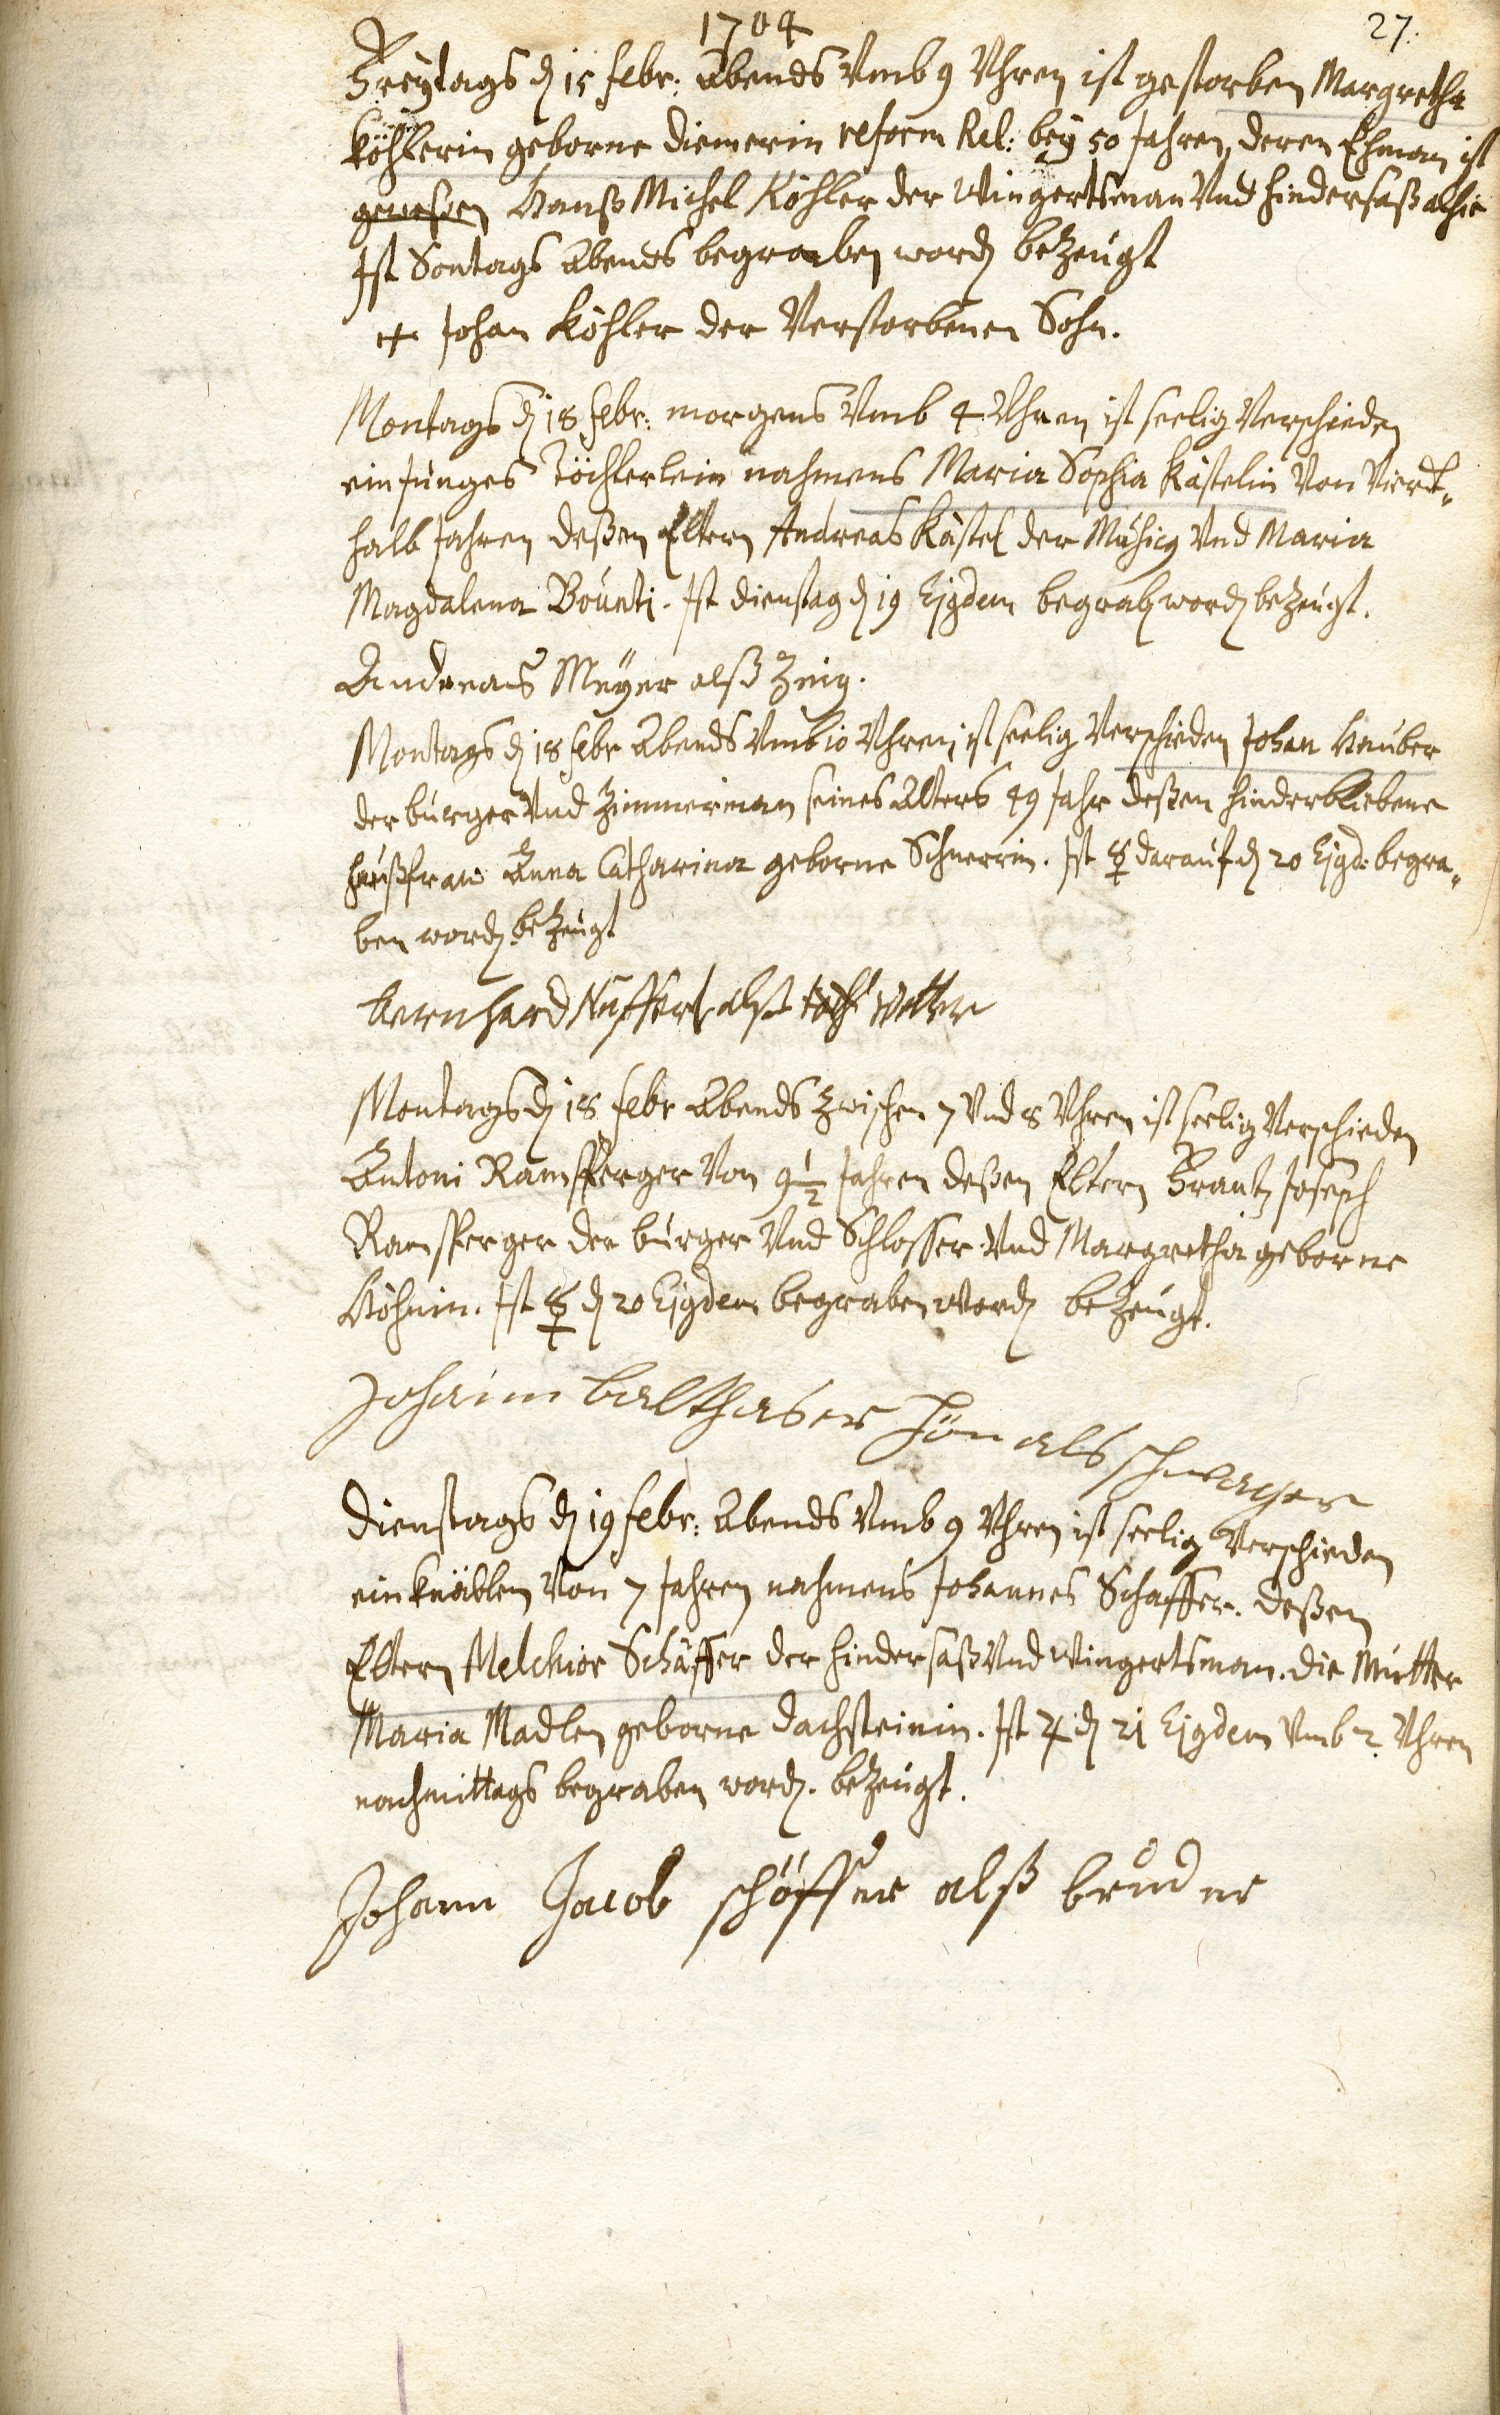 1704
27.
Freytags d 15 febr: Abends Vmb 9 Vhren ist gestorben Margretha
Köhlerin geborne Diemerin reform Rel: bey 50 Jahren, deren Ehman ist
geweßen Hanß Michel Köhler der Wingertsman Vnd hindersaß alhie
Ist Sontags Abends begraben word bezeugt
+ Johan Köhler der Verstorbenen Sohn.
Montags d 18 febr: morgens Vmb 4 Vhren ist seelig Verschieden
ein junges Töchterlein nahmens Maria Sophia Kästelin Von Viert„
halb Jahren deßen Eltern Andreas Kästel der Musicq Vnd Maria
Magdalena . Ist dienstag d 19 Ejgdem begrab word bezeugt.
Andreas Meyer alß Zeig.
Montags d 18 febr Abends Vmb 10 Vhren ist seelig Verschieden Johan Hauber
der burger Vnd Zimmerman seines Alters 49 Jahr deßen hinderbliebene
haußfraw Anna Catharina geborne Schnerrin. Ist ☿ darauf d 20 Ejgd: begra„
ben word bezeugt
bernhard alß Vetter
Montags d 18 febr Abends zwischen 7 Vnd 8 Vhren ist seelig Verschieden
Antoni Ramsperger Von 9 1/2 Jahren deßen Eltern Frantz Joseph
Ramsperger der burger Vnd Schlosser Vnd Margretha geborne
Höhnin. Ist ☿ d 20 Ejgdem begraben word bezeugt.
Johann balthaser Hön als schwager
Dienstags d 19 febr: Abends Vmb 9 Vhren ist seelig Verschieden
ein knäblen Von 7 Jahren nahmens Johannes Schaffer. deßen
Eltern Melchior Schäffer der hindersaß Vnd Wingertsman. die Mutter
Maria Madlen geborne Dachsteinin. Ist ♃ d 21 Ejgdem Vmb 2 Vhren
nachmittags begraben word. bezeugt.
Johann Jacob schöffer alß bruder